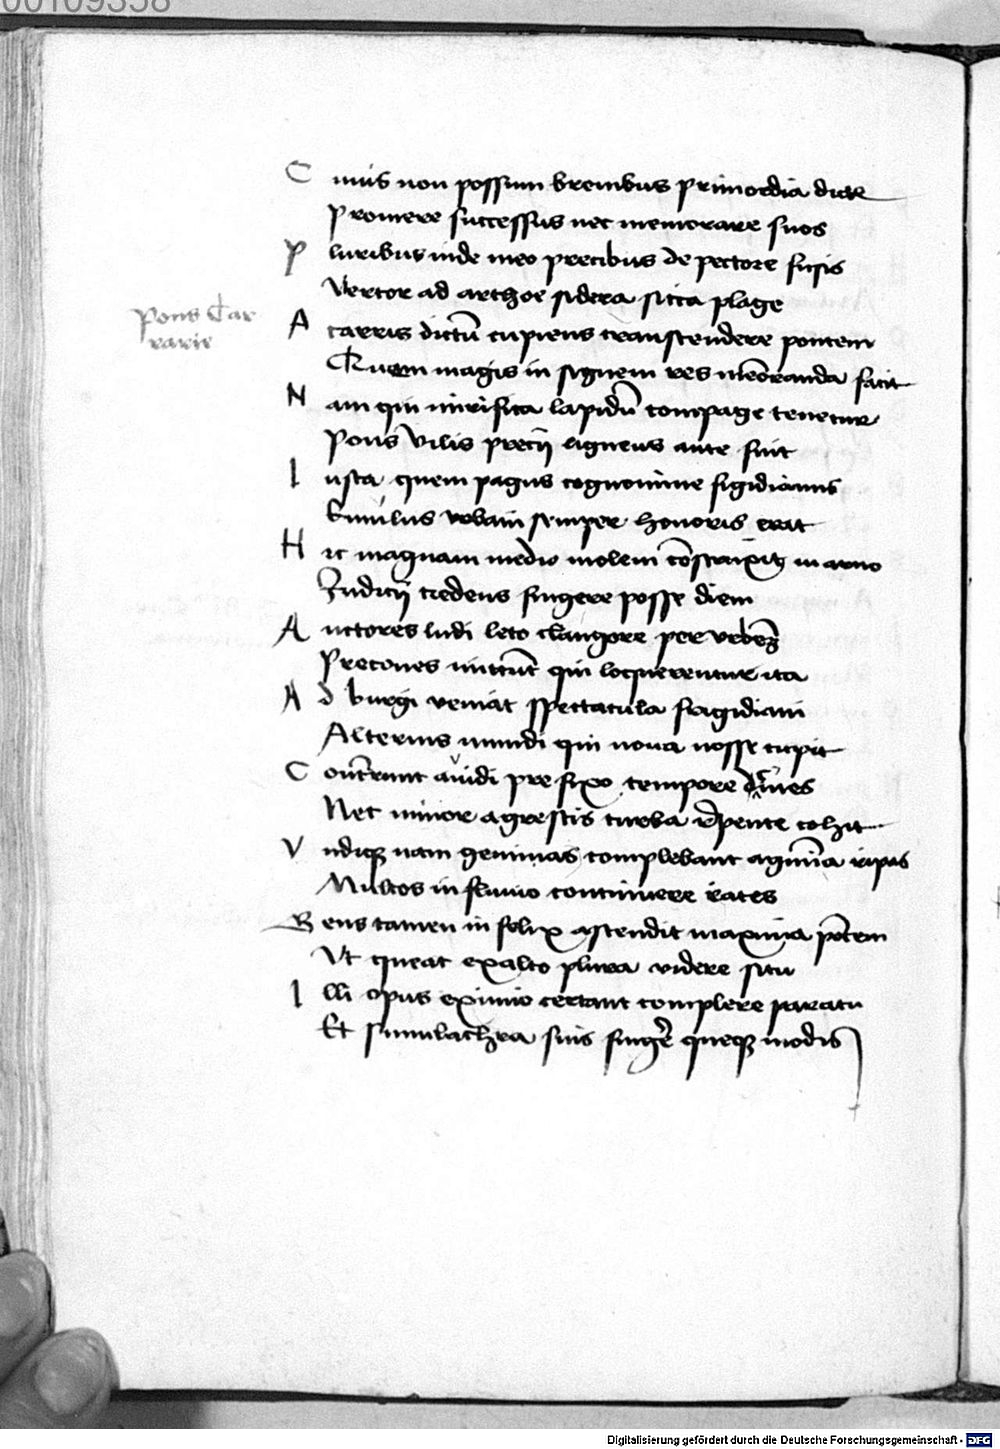 00109358
C uius non possum breuibus primordia dicere
Promere successus nec memorare suos
P luribus inde meo precibus de pectore fusis
Vertor ad arthoe sidera sicca plage
Pons Car
rarie
A carris dictū cupiens transcendere pontem
Quem magis in signem res mēoranda facit
N am qui mirifica lapidū compage tenetur
Pons vilis precij ligneus ante fuit
I uxta quem pagus cognomine frigidianus
Emulus vrbani semper honoris erat
H ic magnam medio molem cōstruxit in arno
Iudicij credens fingere posse diem
A uctores ludi leto clangore per vrbem
Precones mittūt qui loquerentur ita
A d burgi veniāt spectacula fragidiani
Alterius mundi qui noua nosse cupit
C oncurrunt auidi pre fixo tempore ciues
Nec minor agrestis turba repente cohit
V ndiqz nam geminas complebant agmina ripas
Multos in fluuio continuere rates
G ens tamen in felix ascendit maxima pōtem
Vt queat exalto plura videre situ
I lli opus eximio certant complere paratu
Et simulachra suis fingere queqz modis
Digitalisierung gefördert durch die Deutsche Forschungsgemeinschaft - DFG